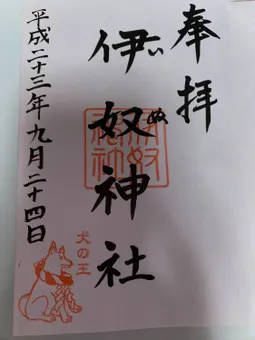 奉拝
伊奴神社
いぬ
犬の王
平成二十三年九月二十四日